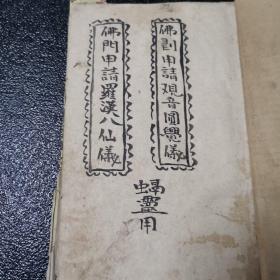 佛劄申請观音圓覺儀
佛門申請羅漢八仙儀
用